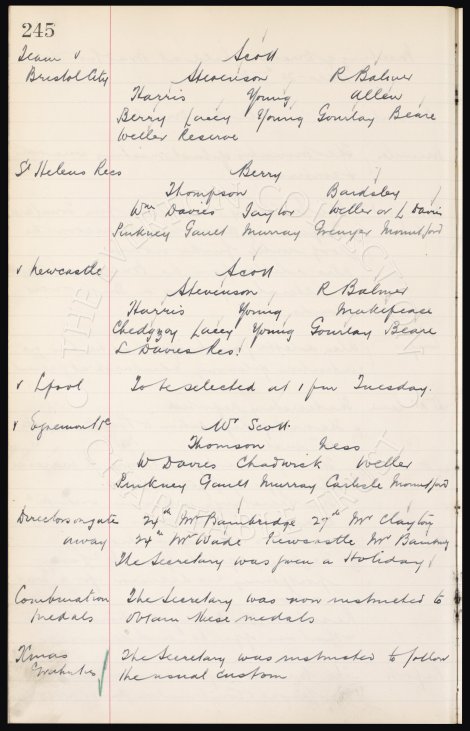 245
Team v Scott
Bristol City Stevenson R Balmer
Harris Young Allen
Berry Lacey Young Gourlay Beare
Weller Reserve
St Helens Recs Berry
Thompson Bardsley
Wm Davies Taylor Weller or L Davis
Pinkney Gault Murray Grenyer Mountford
v Newcastle Scott
Stevenson R Balmer
Harris Young Makepeace
Chedgzoy Lacey Young Gourlay Beare
L Davies Res.
v Lpool To be selected at 1 pm Tuesday.
v Egremont Wr Scott.
Thomson Ness
W Davies Chadwick Weller
Pinkney Gault Murray Carlisle Mountford
Directors on gate 24th Mr Bainbridge 27th Mr Clayton
away 24th Mr Wade Newcastle Mr
The Secretary was given a Holiday
Combination The Secretary was now instructed to
Medals obtain these medals
Xmas The Secretary was instructed to follow
Gratuities the usual custom